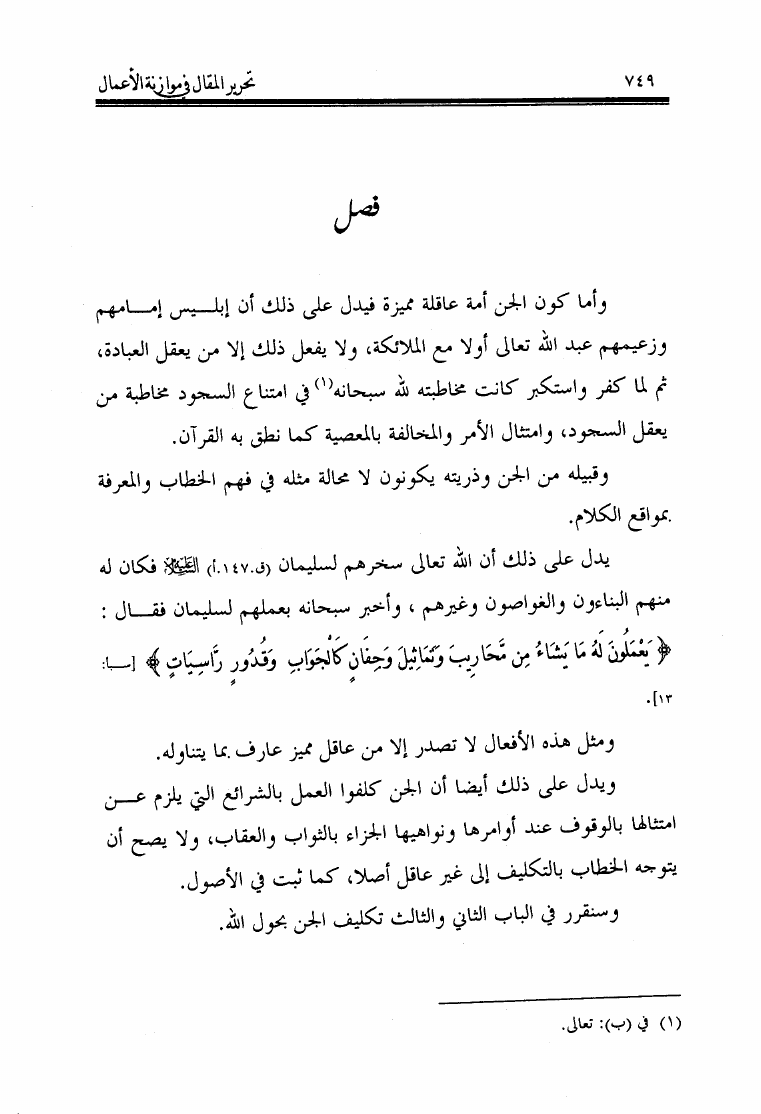 ٧٤٩ تحرير المقال في موازنة الأعمال
فصل
وأما كون الجن أمة عاقلة مميزة فيدل على ذلك أن إبلـــيس إمـــامهم
وزعيمهم عبد الله تعالى أولا مع الملائكة، ولا يفعل ذلك إلا من يعقل العبادة،
ثم لما كفر واستكبر كانت مخاطبته لله سبحانه(١) في امتناع السجود مخاطبة من
يعقل السجود، وامتثال الأمر والمخالفة بالمعصية كما نطق به القرآن.
وقبيله من الجن وذريته يكونون لا محالة مثله في فهم الخطاب والمعرفة
بمواقع الكلام.
يدل على ذلك أن الله تعالى سخرهم لسليمان (ق.١٤٧.أ) العَلَيْهِ السَّلَام فكان له
منهم البناءون والغواصون وغيرهم ، وأخبر سبحانه بعملهم لسليمان فقـــال :
﴿ يَعْمَلُونَ لَهُ مَا يَشَاءُ مِن مَّحَارِيبَ وَتَمَاثِيلَ وَجِفَانٍ كَالْجَوَابِ وَقُدُورٍ رَّاسِيَاتٍ ﴾ [سـبأ:
١٣].
ومثل هذه الأفعال لا تصدر إلا من عاقل مميز عارف بما يتناوله.
ويدل على ذلك أيضا أن الجن كلفوا العمل بالشرائع التي يلزم عـــن
امتثالها بالوقوف عند أوامرها ونواهيها الجزاء بالثواب والعقاب، ولا يصح أن
يتوجه الخطاب بالتكليف إلى غير عاقل أصلا، كما ثبت في الأصول.
وسنقرر في الباب الثاني والثالث تكليف الجن بحول الله.
(١) في (ب): تعالى.